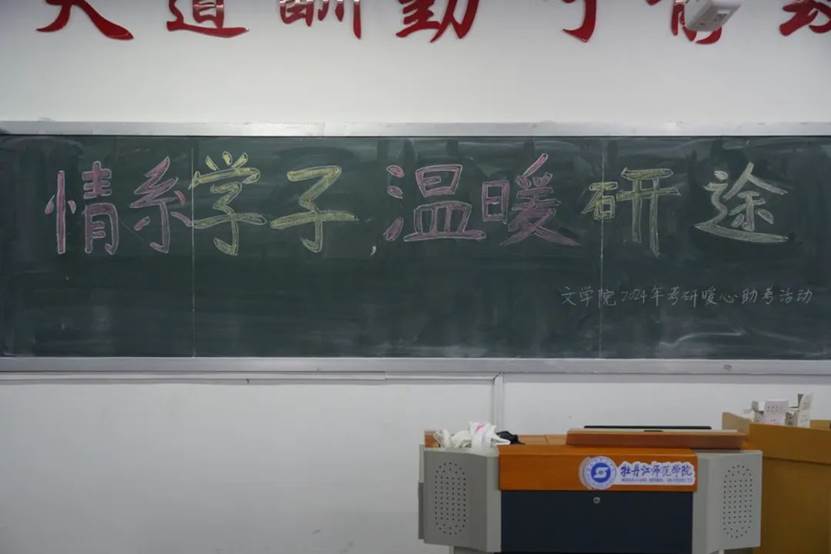 天道酬勤
情系学子,温暖研途
文学院2024年考研暖心助考活动
牡丹江师范学院